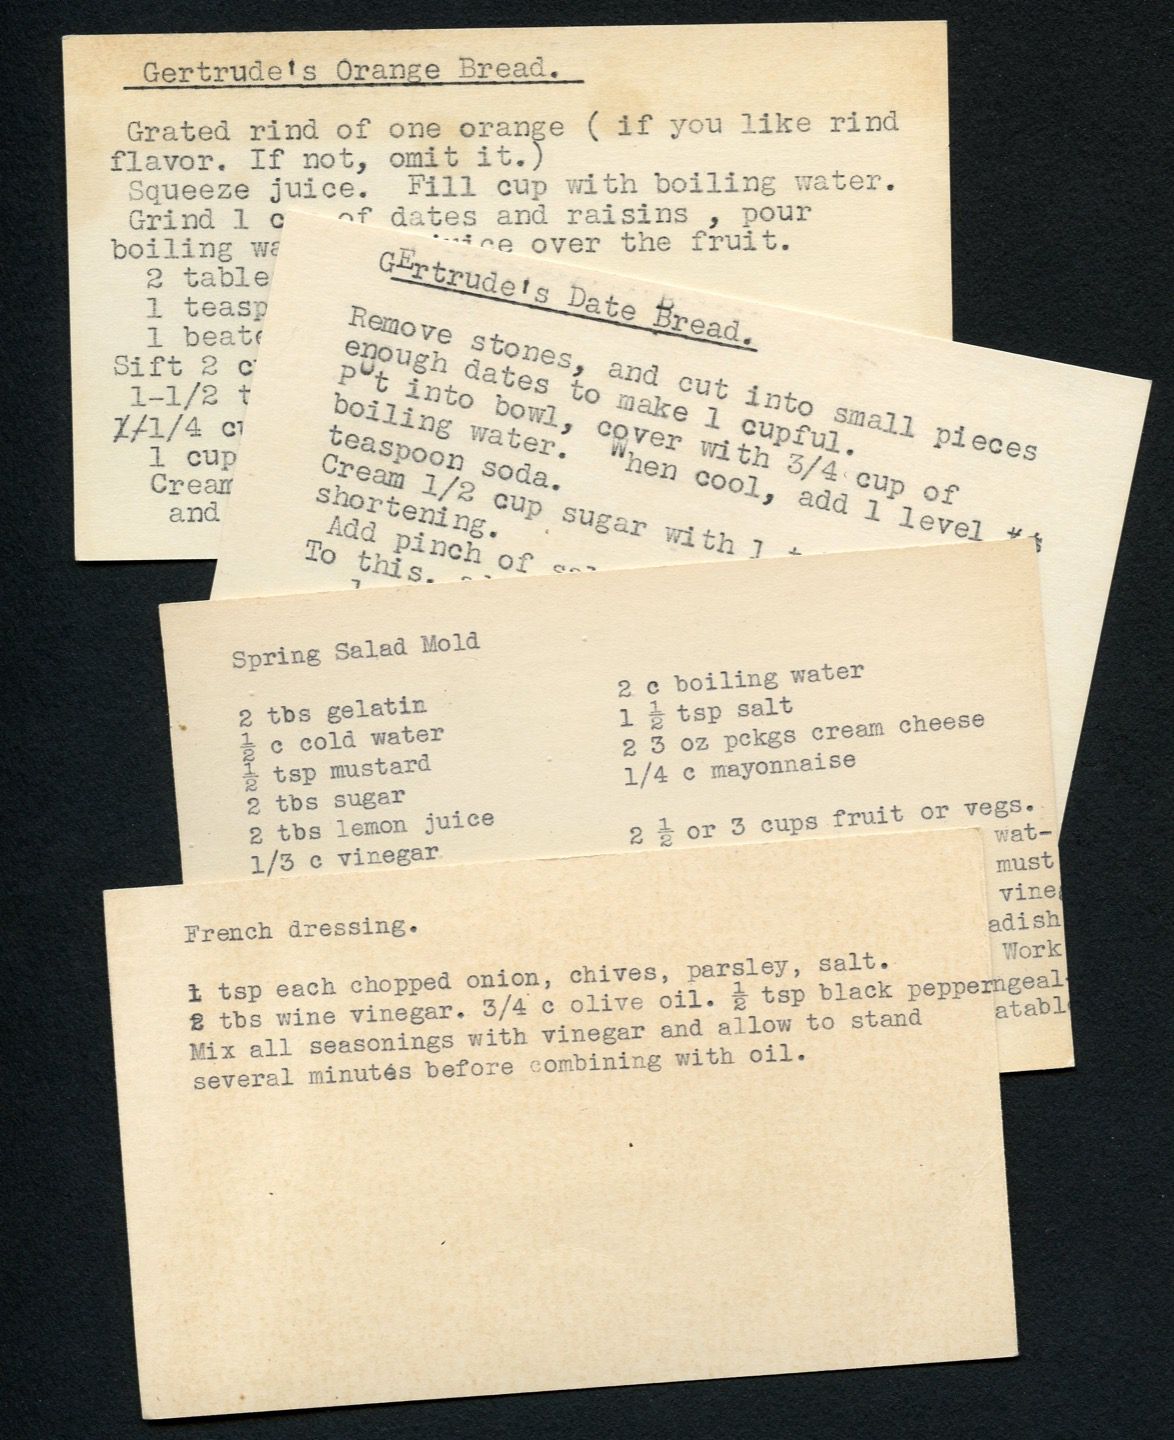 Gertrude's Orange Bread.
Grated rind of one orange ( if you like rind
flavor. If not, omit it.)
Squeeze juice. Fill cup with boiling water.
Grind 1 of dates and raisins , pour
boiling juice over the fruit.
2 table
1 teasp
1 beate
Sift 2 c
1-1/2 t
1/4 cu
1 cup
Cream
and
GErtrude's Date Bread.
Remove stones, and cut into small pieces
enough dates to make 1 cupful.
pUt into bowl, cover with 3/4 cup of
boiling water. When cool, add 1 level
teaspoon soda.
Cream 1/2 cup sugar with 1 t
shortening.
Add pinch of
To this,
Spring Salad Mold
2 tbs gelatin
½ c cold water
½ tsp mustard
2 tbs sugar
2 tbs lemon juice
1/3 c vinegar
2 c boiling water
1 ½ tsp salt
2 3 oz pckgs cream cheese
1/4 c mayonnaise
2 ½ or 3 cups fruit or vegs.
wat-
must
vine
adish
Work
ngeal
atabl
French dressing.
1 tsp each chopped onion, chives, parsley, salt.
2 tbs wine vinegar. 3/4 c olive oil. ½ tsp black pepper
Mix all seasonings with vinegar and allow to stand
several minutés before combining with oil.